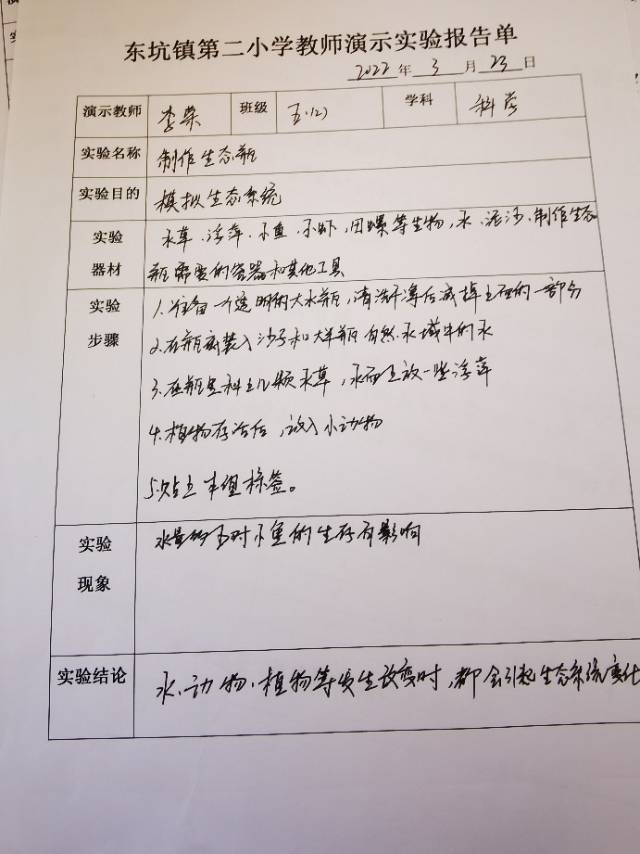 东坑镇第二小学教师演示实验报告单
2022 年 3 月 23 日
演示教师 李荣 班级 五.(2) 学科 科学
实验名称 制作生态瓶
实验目的 模拟生态系统
实验 水草、浮萍、小鱼、小虾、田螺等生物,水、泥沙、制作生态
器材 瓶需要的容器和其他工具
实验 1.准备一个透明的大水瓶,清洗干净后减掉上面的一部分
步骤 2.在瓶底装入沙子和大半瓶自然水域中的水
3.在瓶里种上几颗水草,水面上放一些浮萍
4.植物存活后,放入小动物
5.贴上本组标签。
实验 水量的多对小鱼的生存有影响
现象
实验结论 水、动物、植物等发生改变时,都会引起生态系统变化